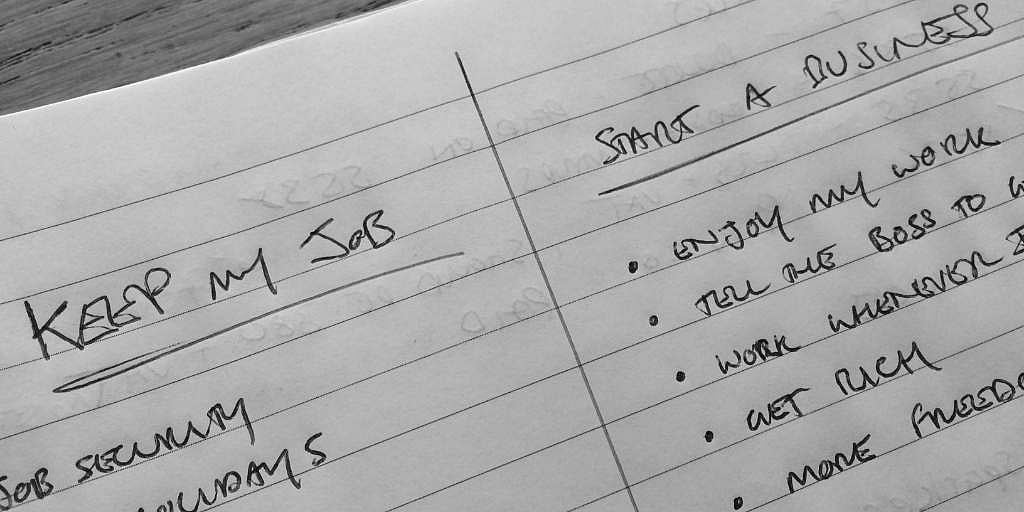 KEEP MY JOB
JOB SECURITY
HOLIDAYS
START A BUSINESS
• ENJOY MY WORK
• TELL THE BOSS TO
• WORK WHENEVER I
• GET RICH
• MORE